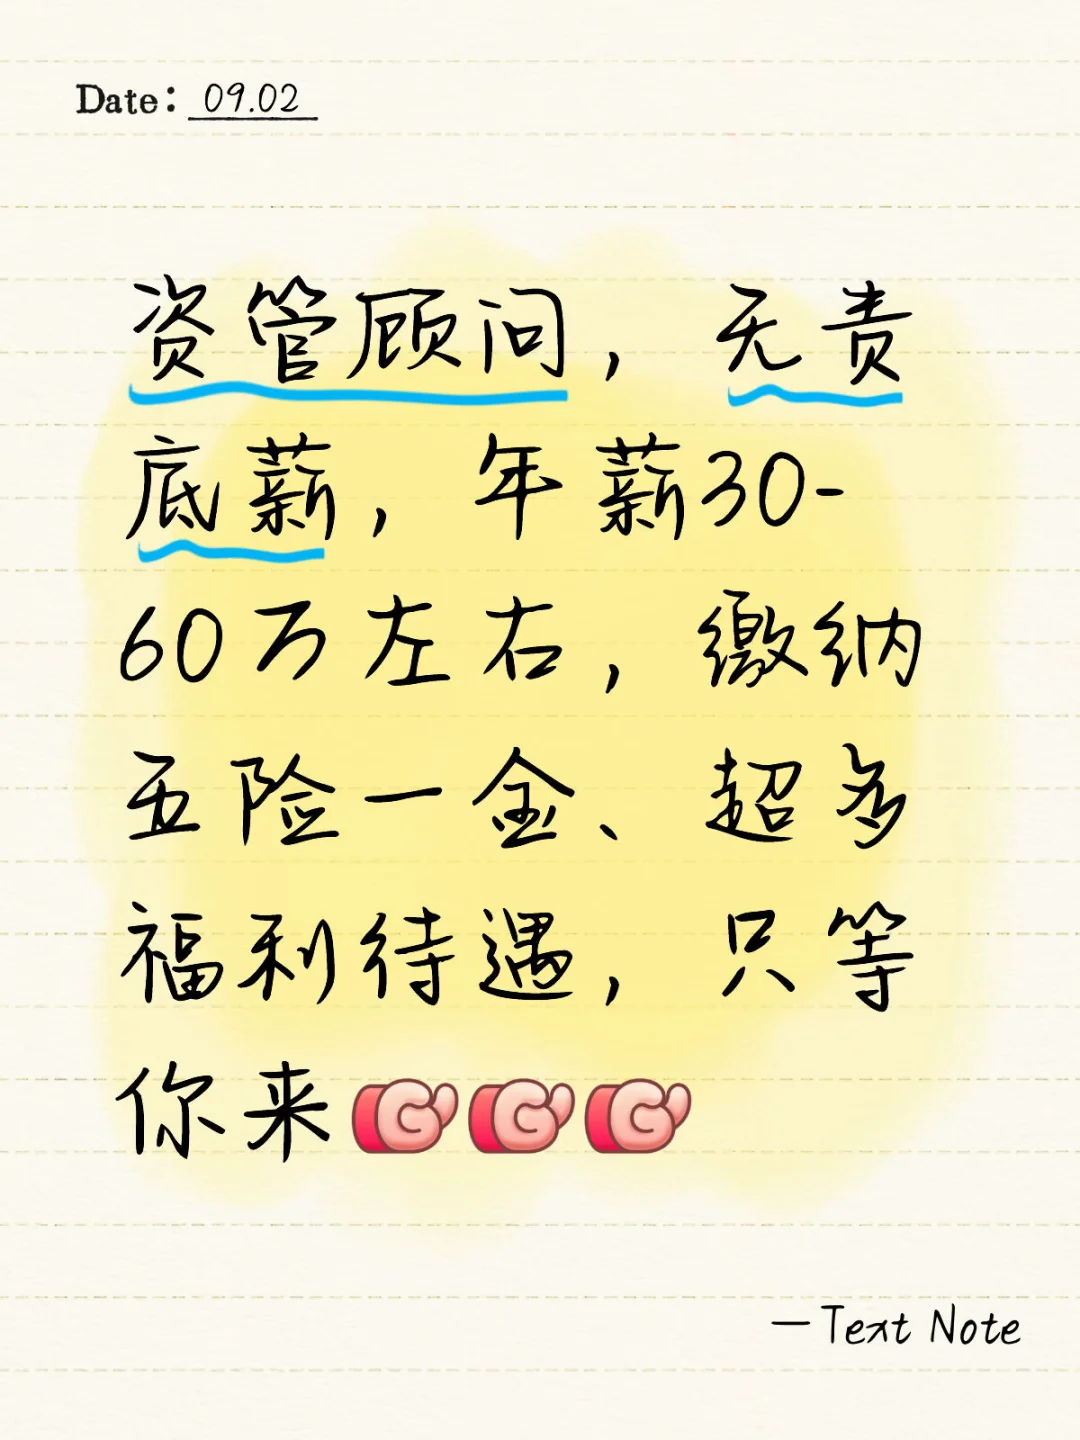 Date: 09.02
资管顾问，无责
底薪，年薪30-
60万左右，缴纳
五险一金、超多
福利待遇，只等
你来
—Text Note